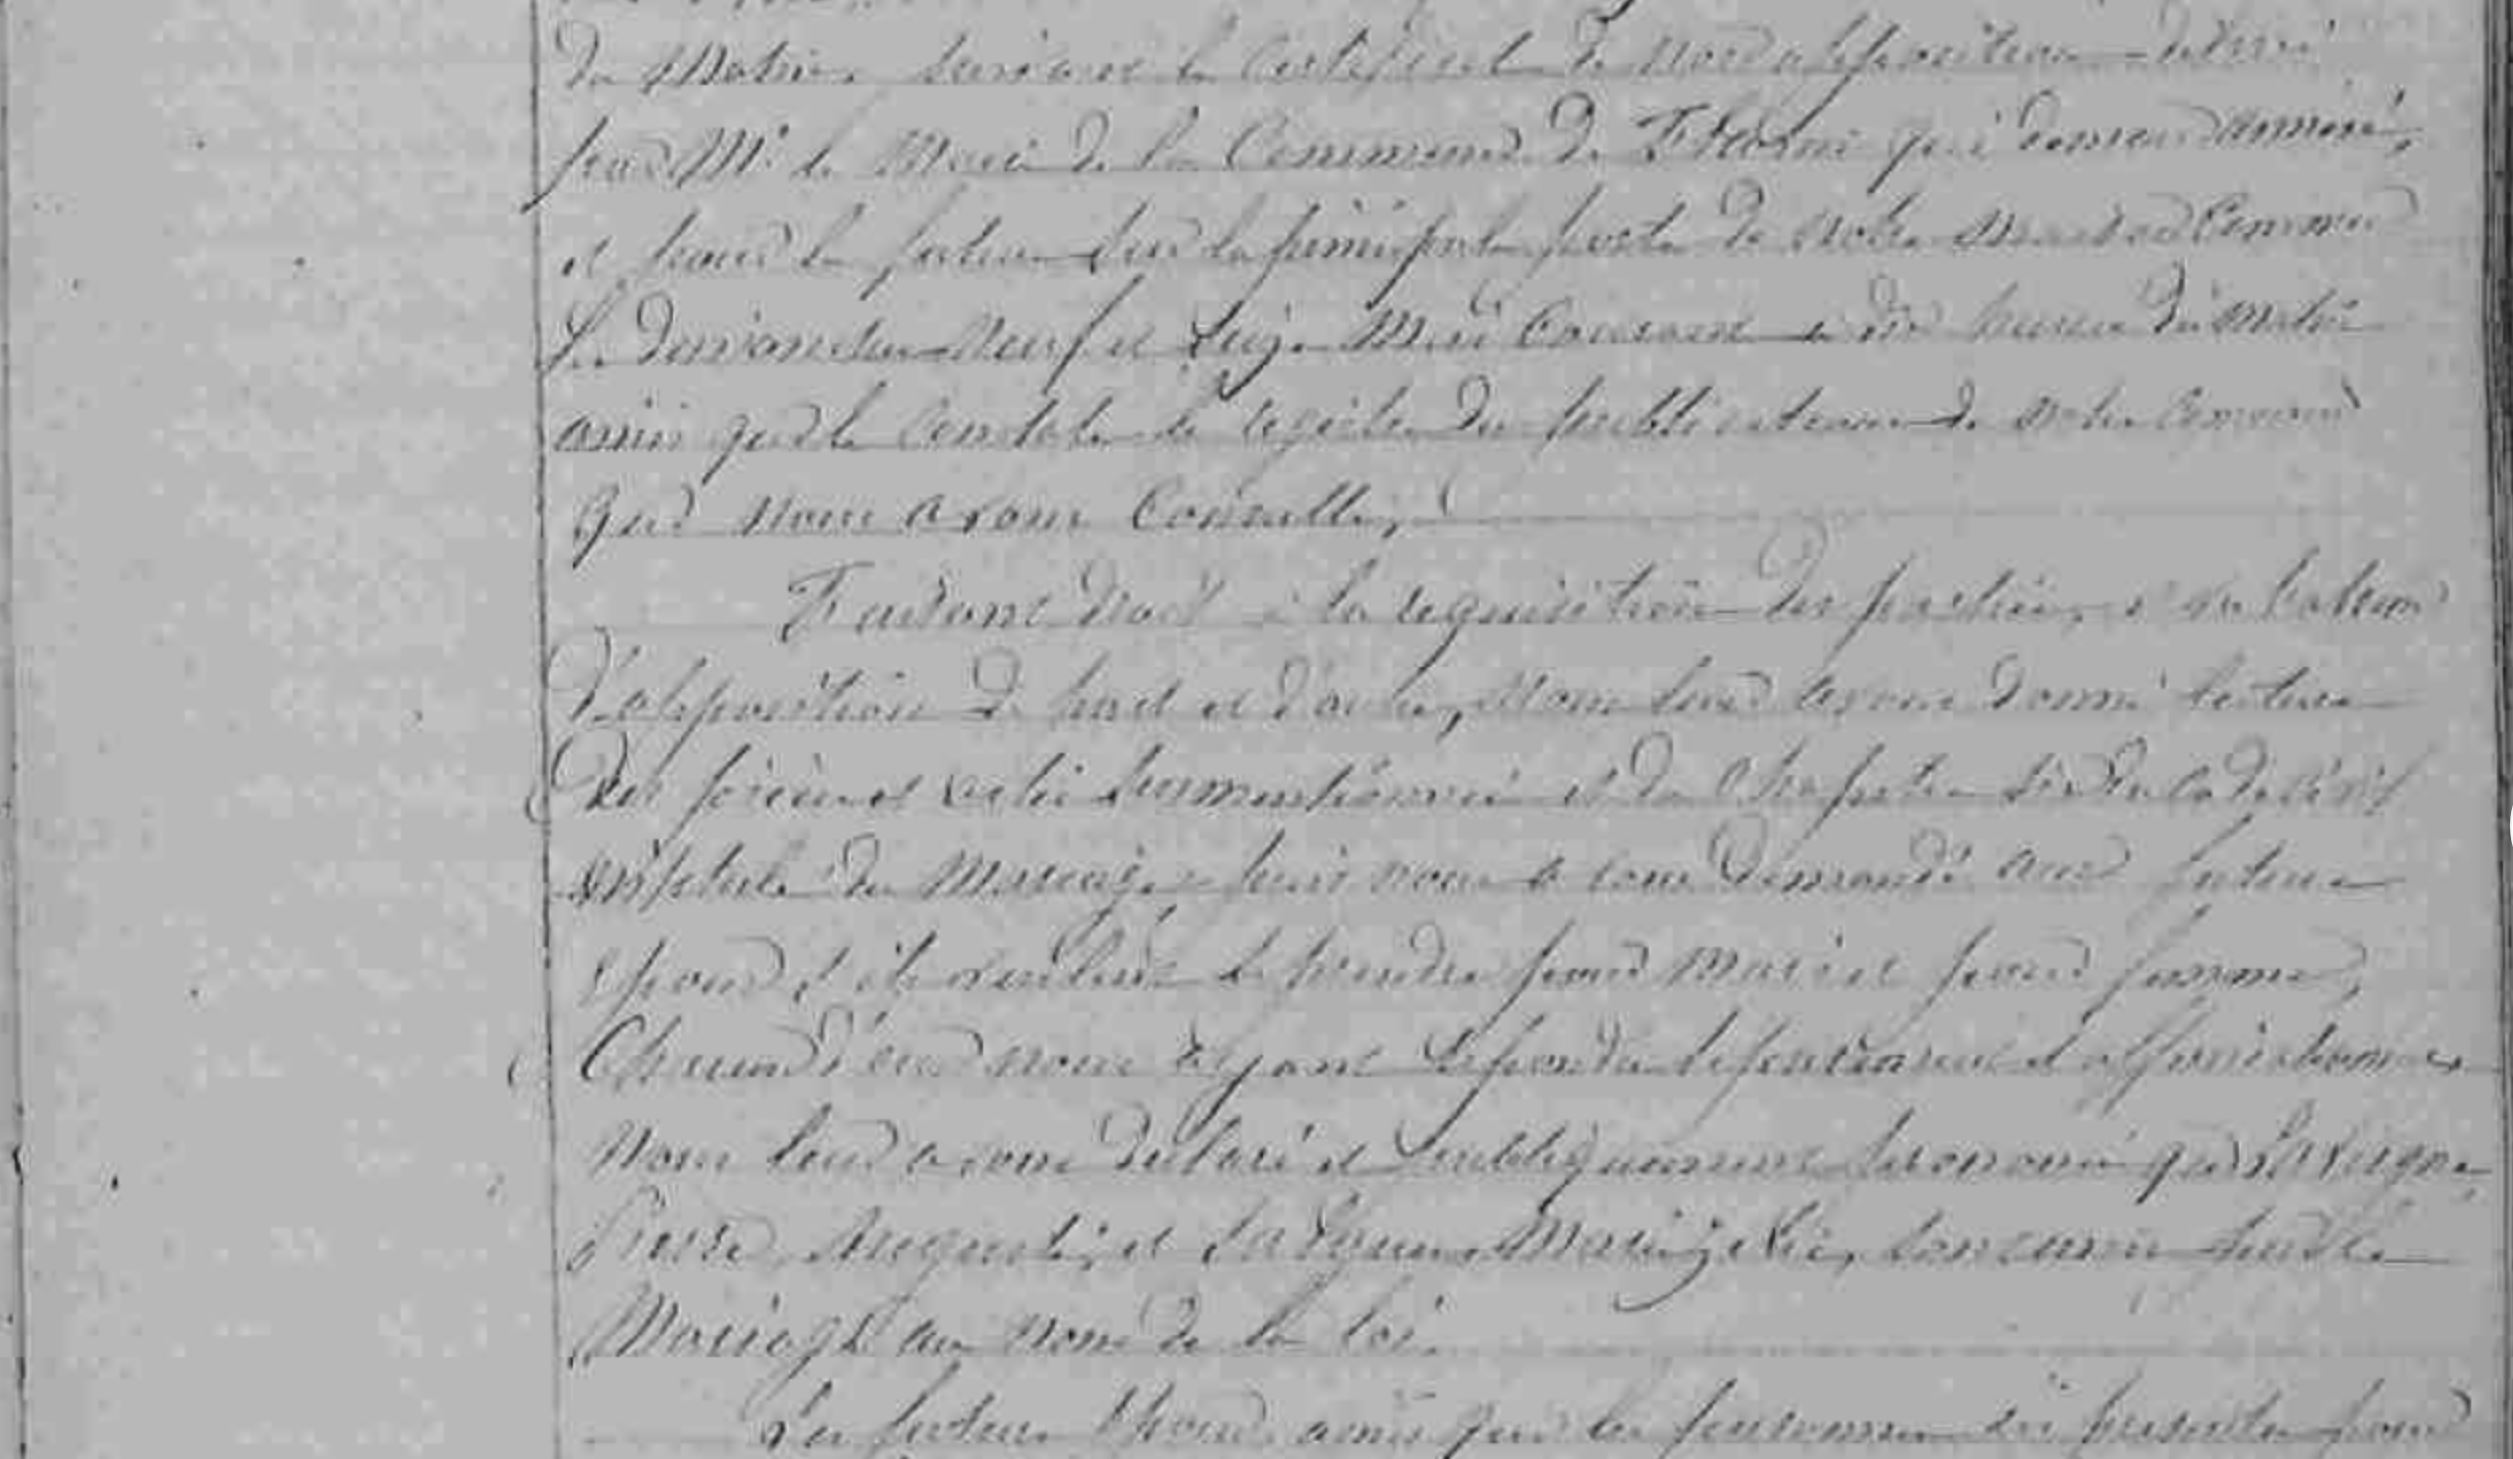 du Matin, suivant le Certificat de non opposition délivré
par Mr le Maire de la Commune de qui demeure annexé,
et pour la future sur la principale porte de notre Maison Commune
les dimanches neuf et seize Mai Courant à dix heures du matin
ainsi que le Constate le registre des publications de notre Commune
que nous avons Consulté,
Faisant droit à la requisition des parties, et vu
d'opposition de part et d'autre, Nous leur avons donné lecture
des pièces et actes susmentionnés et du Chapitre Six du Code Civil
intitulé du Mariage, puis nous avons demandé aux futurs
époux s'ils veulent se prendre pour Mari et pour femme,
Chacun d'eux nous ayant répondu séparément et affirmativement
Nous leur avons déclaré et publiquement prononcé que
Pierre, Auguste, et Marie, sont unis par le
Mariage au nom de la loi.
Les futurs époux ainsi que les personnes ici présentes pour